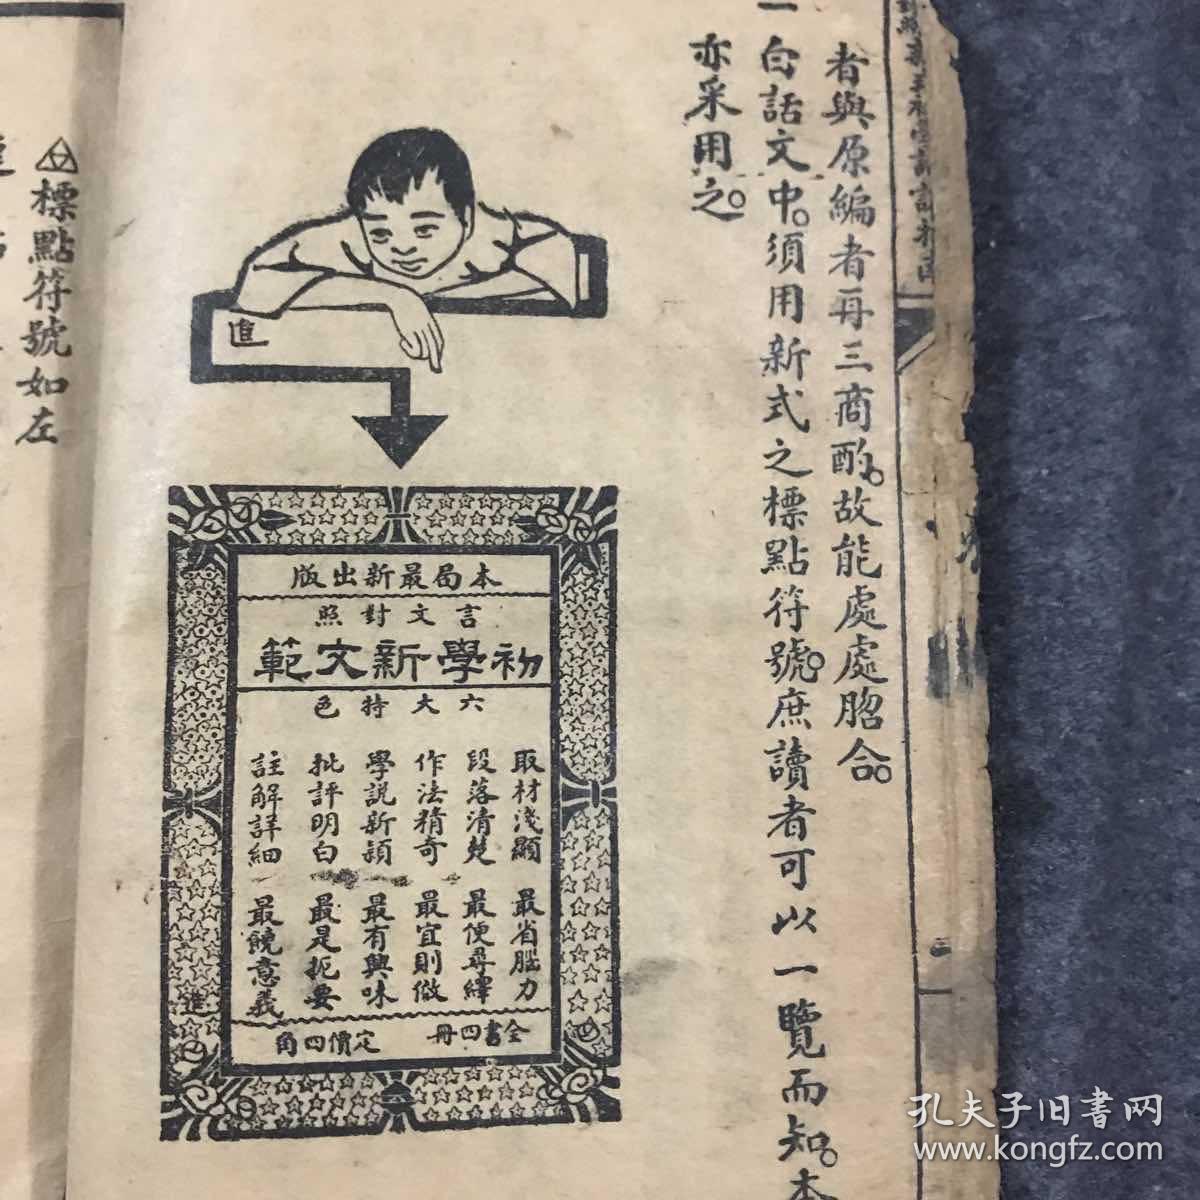 者與原編者再三商酌。故能處處脗合。
一白話文中。須用新式之標點符號。庶讀者可以一覽而知。本
亦采用之。
進
本局最新出版
言文對照
初學新文範
六大特色
取材淺顯 最省腦力
段落清楚 最便尋繹
作法精奇 最宜則傚
學說新穎 最有興味
批評明白 最是扼要
註解詳細 最饒意義
全書四冊 定價四角
標點符號如左
孔夫子旧书网
www.kongfz.com